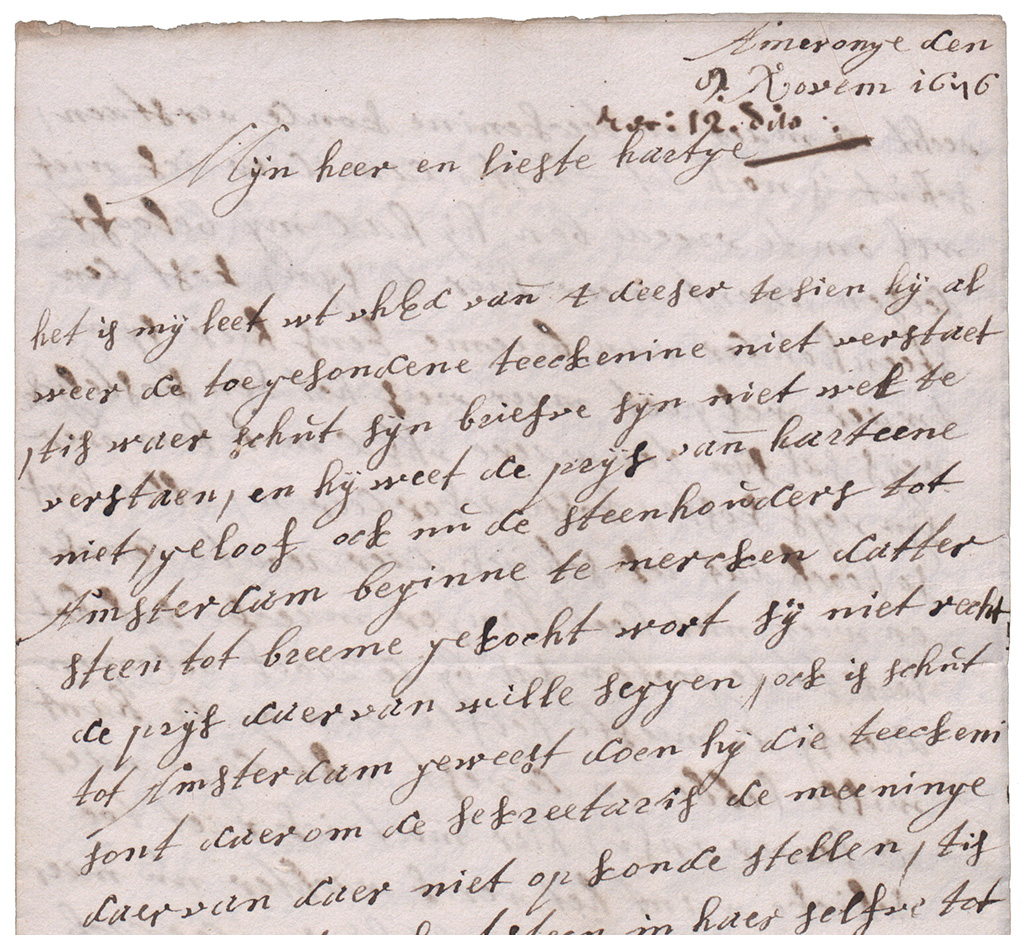 Ameronge den
9. Novem 1676
rec: 12. dito.
Mijn heer en lieste hartge
het is mij leet wt uhEd van 4 deeser te sien hij al
weer de toegesondene teeckenine niet verstaet
, tis waer schut sijn briefve sijn niet wel te
verstaen, en hij weet de prijs van harteene
niet, geloof ock nu de steenhouders tot
Amsterdam beginne te mercken datter
steen tot breeme gekocht wort sij niet recht
de prijs daer van wille seggen, ock is schut
tot Amsterdam geweest doen hij die teeckeni
sont daerom de sekreetaris de meeninge
daer van daer niet op konde stellen, tis
steen in haer selfve tot